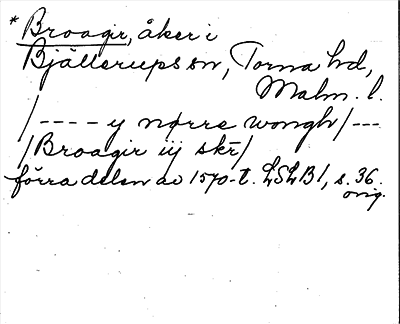 * Broagir, åker i
Bjällerups sn, Torna hd,
Malm. l.
/---- y nørre wongh/---
/Broagir iij skr/
förra delen av 1570-t. LSLB1, s. 36.
orig.